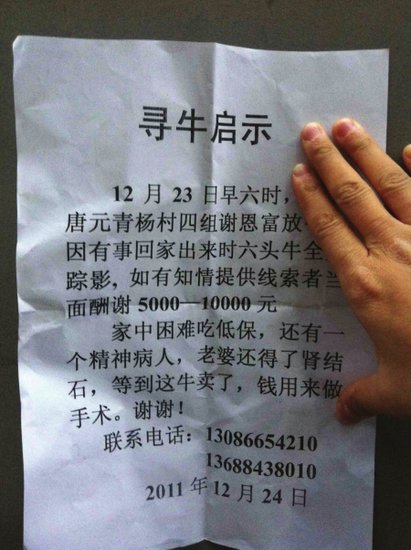 寻牛启示
12 月 23 日早六时，
唐元青杨村四组谢恩富放
因有事回家出来时六头牛全
踪影，如有知情提供线索者当
面酬谢 5000—10000 元
家中困难吃低保，还有一
个精神病人，老婆还得了肾结
石，等到这牛卖了，钱用来做
手术。谢谢！
联系电话：13086654210
13688438010
2011 年 12 月 24 日